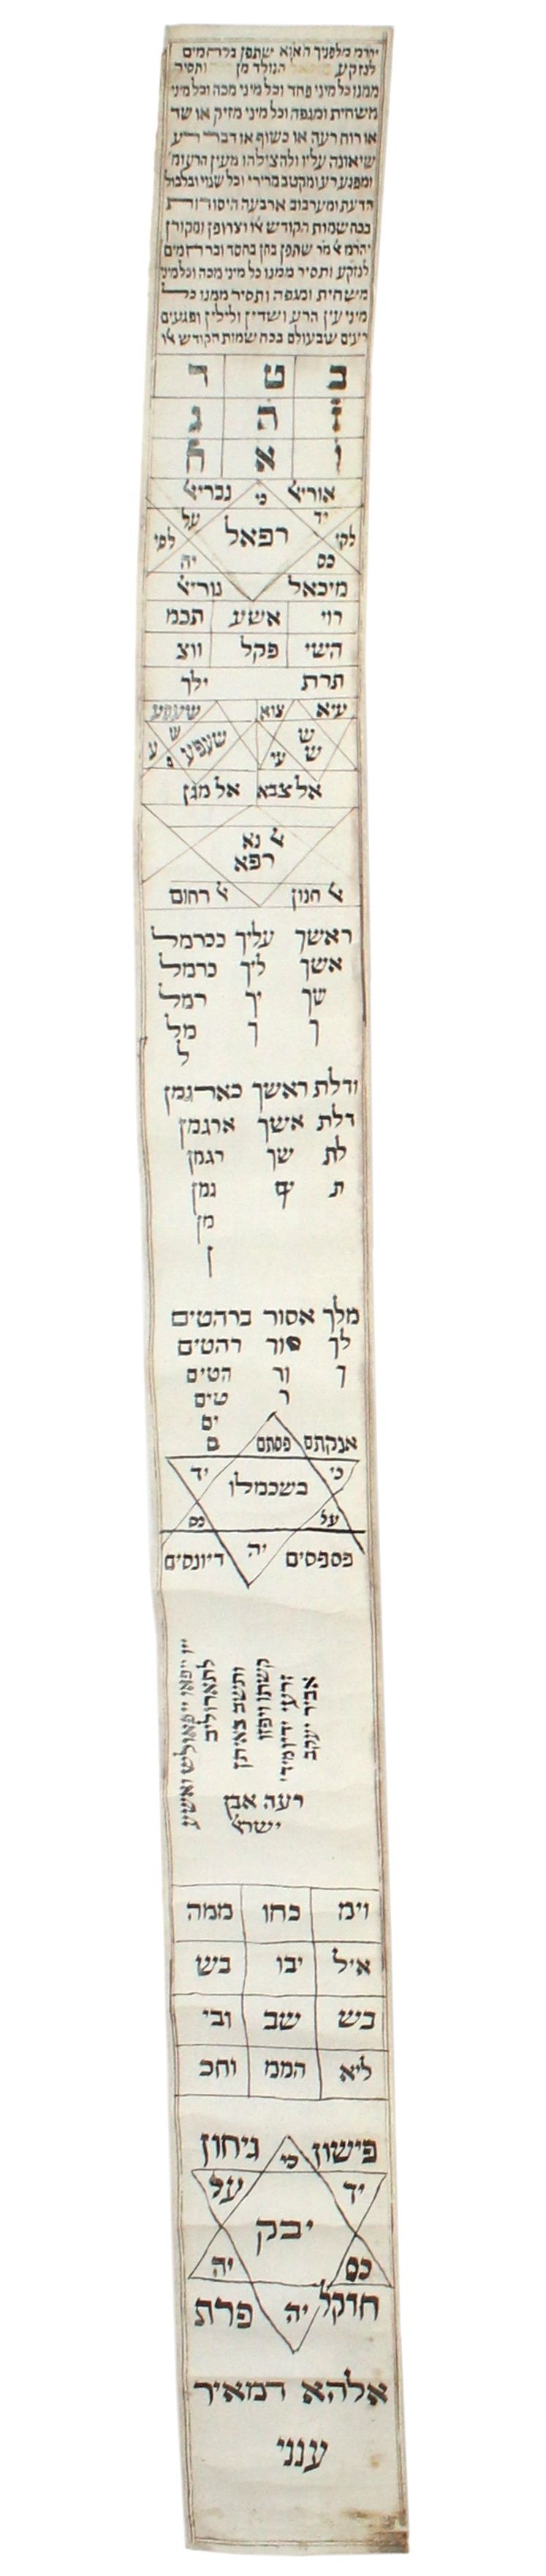 יהרמ מלפניך האוא שתפן ברחמים
לנזקע הנולד מן ותסיר
ממנו כל מיני פחד וכל מיני מכה וכל מיני
משחית ומגפה וכל מיני מזיק או שד
או רוח רעה או כשוף או דבר רע
שיאונה עליו ולהצילהו מעין הרע ומ
ומפגע רע ומקטב מרירי וכל שנוי ובלבול
הדעת ומערבוב ארבעה היסודות
בכח שמות הקודש או וצרופן ומקורן
יהרמ שתפן בחן בחסד וברחמים
לנזקע ותסיר ממנו כל מיני מכה וכל מיני
משחית ומגפה ותסיר ממנו כל
מיני עין הרע ושדין ולילין ופגעים
רעים שבעולם בכח שמות הקודש או
ב ט ד
ז ה ג
ו א ח
אוריאל כי גבריאל
יד על
לקי רפאל לפי
כס יה
מיכאל נוריאל
רוי אשע תכמ
השי פקל ווצ
תרת ילך
עיא צוא שעפע
ש ש עי שעפע ש פ ע
אל צבא אל מגן
אל נא
רפא
אל חנון אל רחום
ראשך עליך ככרמל
אשך ליך כרמל
שך יך רמל
ך ך מל
ל
ודלת ראשך כארגמן
דלת אשך ארגמן
לת שך רגמן
ת ך גמן
מן
ן
מלך אסור ברהטים
לך סור רהטים
ך ור הטים
ר טים
ים
אנקתם פסתם ם
כי יד
בשכמלו
על כס
פספסים יה דיונסים
לתארולים
ותשב באיתן
קשתו ויפזו
זרעי ידיו מידי
אביר יעקב
רעה אבן
ישראל
וימ כחו ממה
איל יבו בש
כש שב ובי
ליא הממ וחכ
פישון כי גיחון
יד על
יבק
כס יה
חדקל יה פרת
אלהא דמאיר
ענני